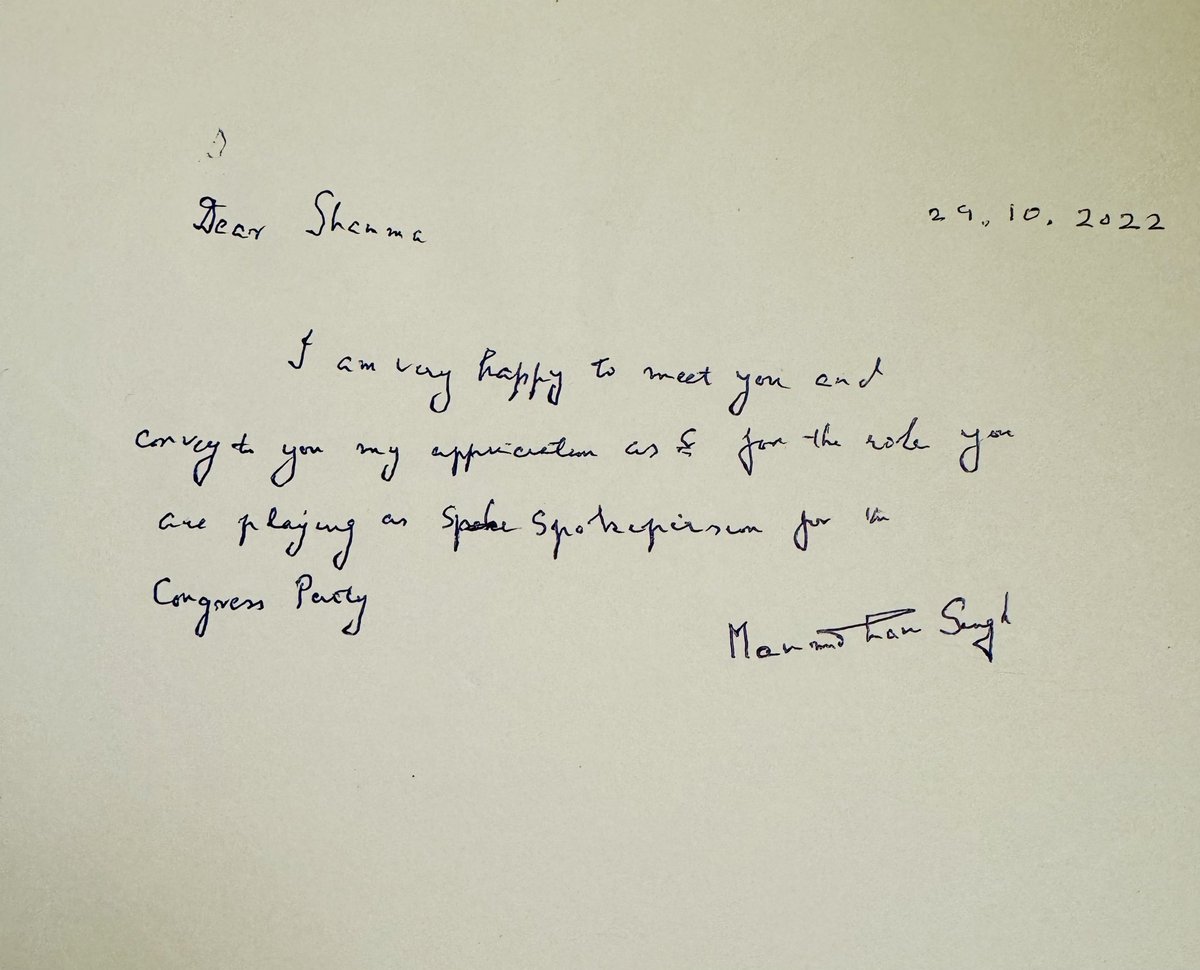 Dear Shamma 29.10.2022
I am very happy to meet you and
convey to you my appreciation as for the role you
are playing as Spoke Spokeperson for the
Congress Party
Manmohan Singh